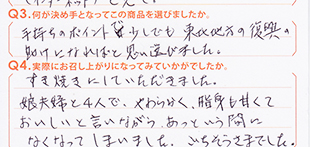 Q3.何が決め手となってこの商品を選びましたか。
手持ちのポイントで少しでも東北地方の復興の
助けになればと思い選びました。
Q4.実際にお召し上がりになってみていかがでしたか。
すき焼きにしていただきました。
娘夫婦と4人で、やわらかく、脂身も甘くて
おいしいと言いながら、あっという間に
なくなってしまいました。ごちそうさまでした。